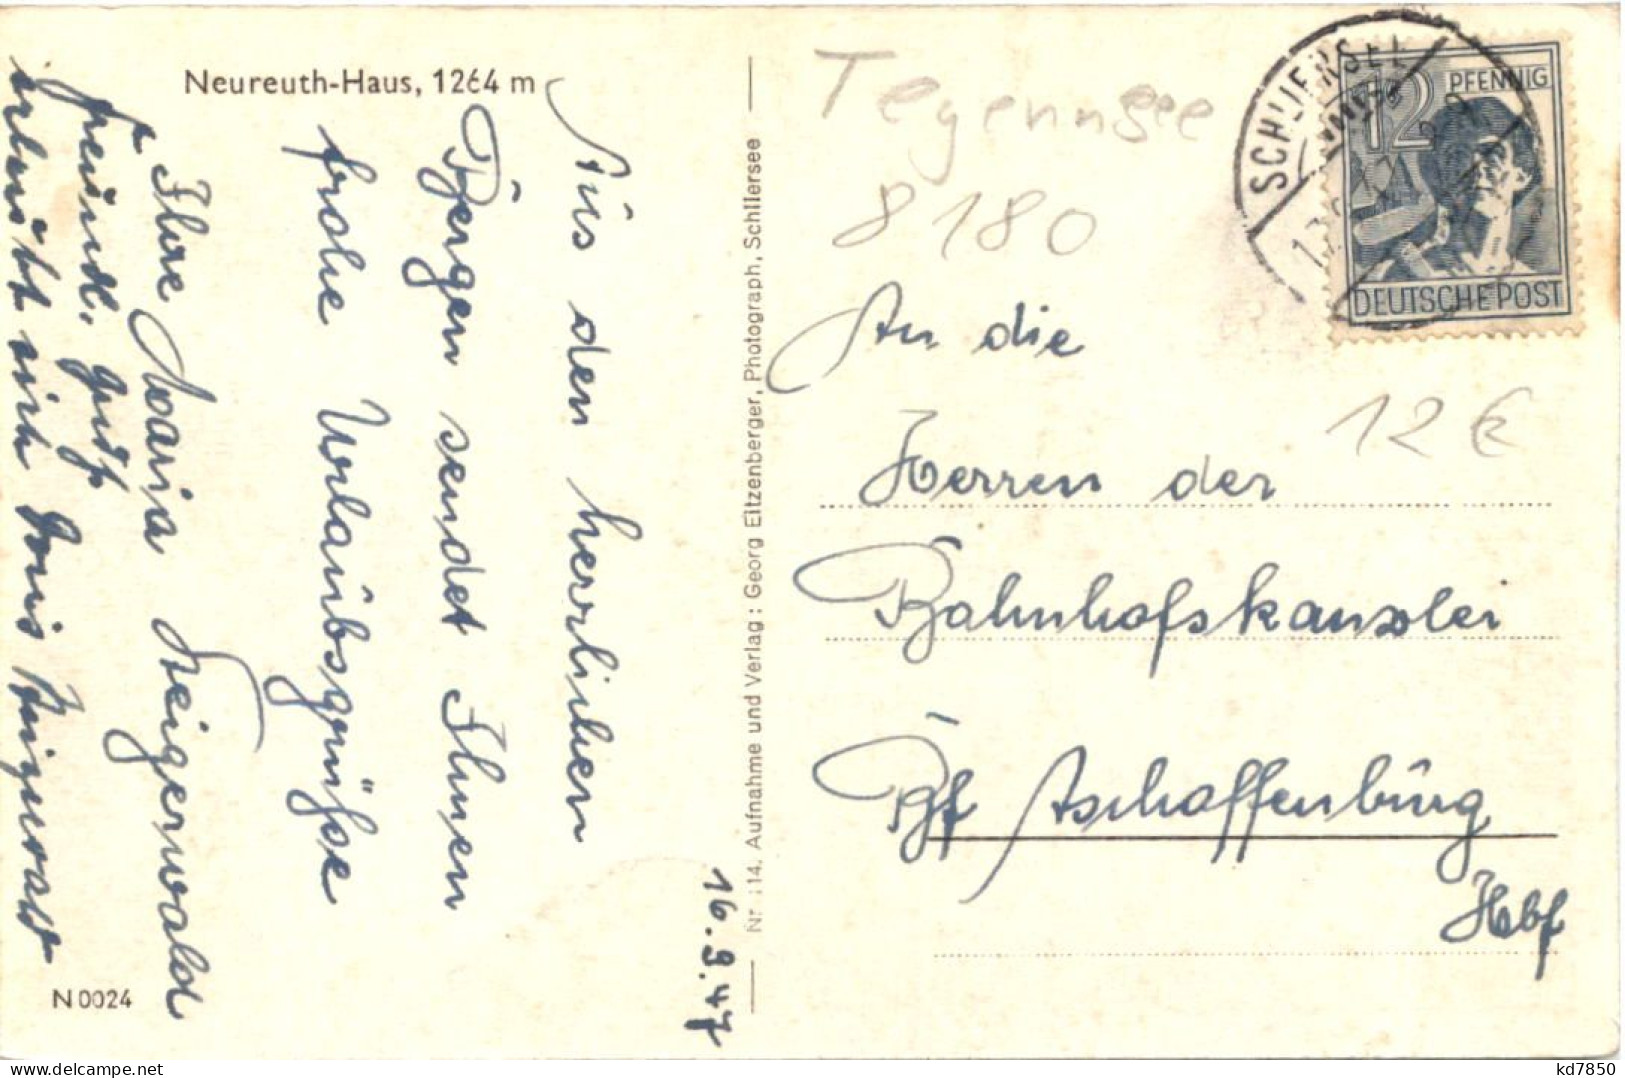 Neureuth-Haus, 1264 m
16.9.47
Aus den herrlichen
Bergen sendet Ihnen
frohe Urlaubsgrüße
Ihre Maria Steigerwald
freundl. Gruß
erlaubt sich
N 0024
Nr. 114. Aufnahme und Verlag: Georg Eitzenberger, Photograph, Schliersee
Tegernnsee
8180
SCHLIERSEE
12 PFENNIG
DEUTSCHE POST
12 €
An die
Herren der
Bahnhofskanzlei
Bhf Aschaffenburg
Hbf
delcampe.net
kd7850